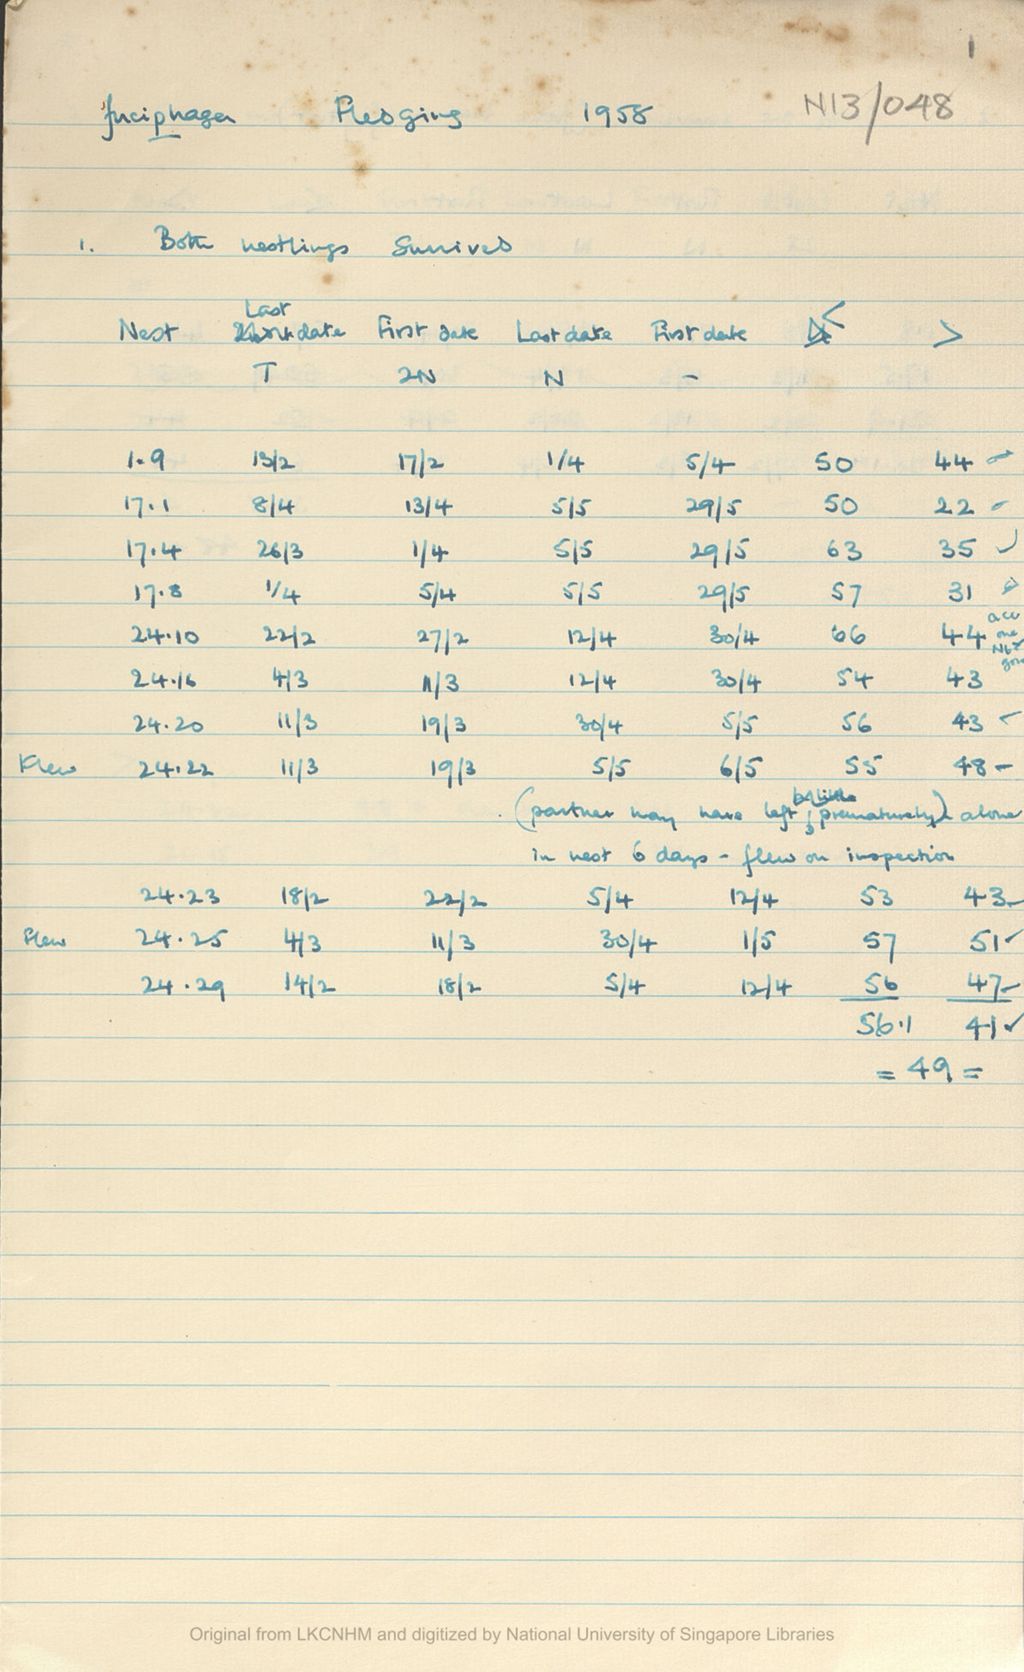 1
fuciphaga Fledging 1958 N13/048
1. Both nestlings Survived
Last
Nest date First date Last date First date < >
T 2N N -
1.9 13/2 17/2 1/4 5/4 50 44
17.1 8/4 13/4 5/5 29/5 50 22
17.4 26/3 1/4 5/5 29/5 63 35 ✓
17.8 1/4 5/4 5/5 29/5 57 31
24.10 22/2 27/2 12/4 30/4 66 44
24.16 4/3 11/3 12/4 30/4 54 43
24.20 11/3 19/3 30/4 5/5 56 43
Flew 24.22 11/3 19/3 5/5 6/5 55 48 -
(partner may have left a little prematurely) alone
in nest 6 days - flew on inspection
24.23 18/2 22/2 5/4 12/4 53 43
Flew 24.25 4/3 11/3 30/4 1/5 57 51 ✓
24.29 14/2 18/2 5/4 12/4 56 47
56.1 41 ✓
= 49 =
Original from LKCNHM and digitized by National University of Singapore Libraries